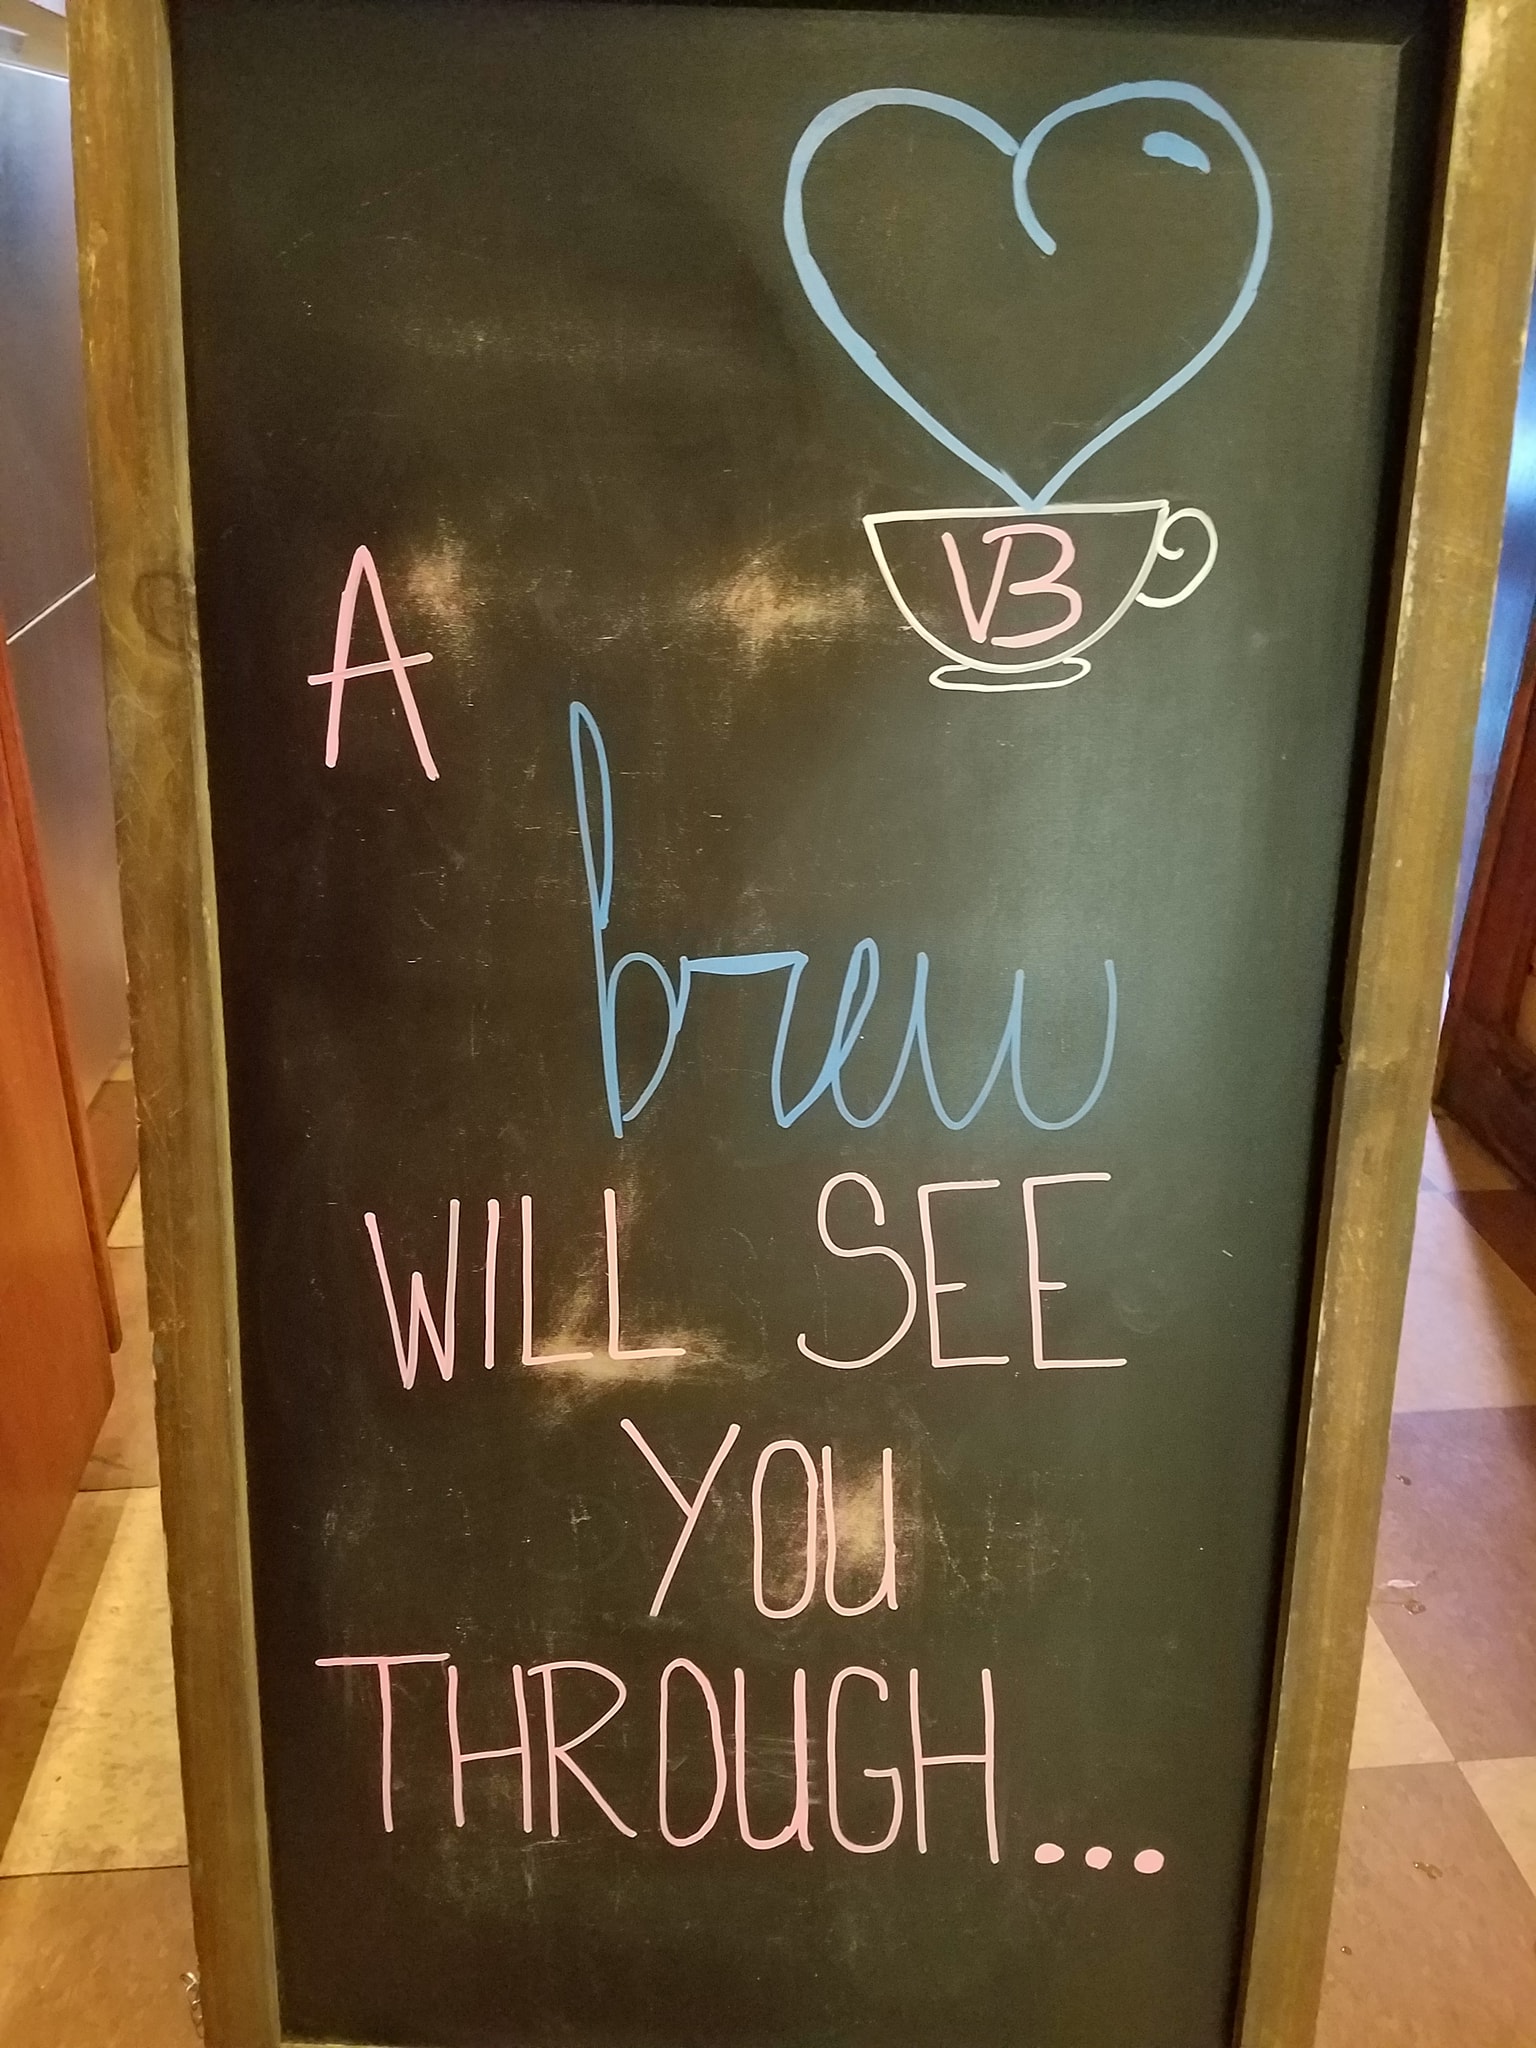 VB
A
brew
WILL SEE
YOU
THROUGH...